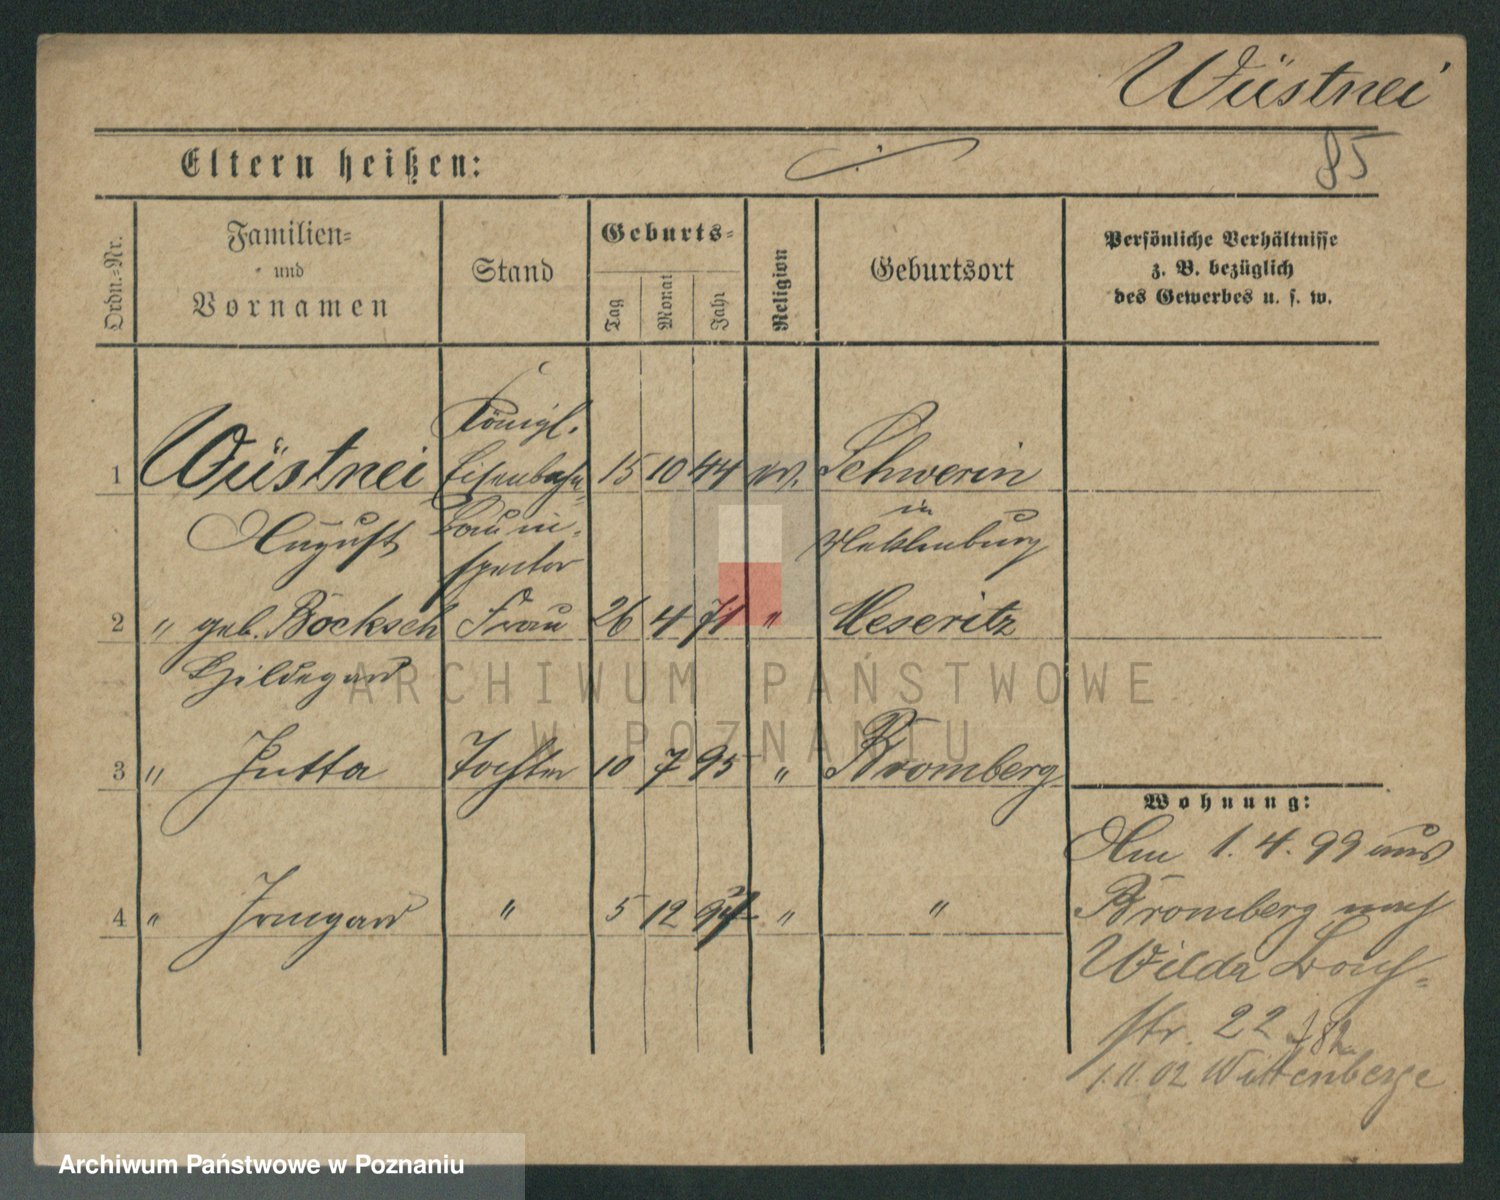 Wüstnei
85
Eltern heißen:
Ordn.-Nr.
Familien-
und
Vornamen
Stand
Geburts-
Tag
Monat
Jahr
Religion
Geburtsort
Persönliche Verhältnisse
z. B. bezüglich
des Gewerbes u. s. w.
Königl.
1 Wüstnei Eisenbahn- 15 10 44 ev. Schwerin
August Bauin- in
spector Meklenburg
2 " geb. Böcksch Frau 26 4 71 " Meseritz
Hildegard
3 " Jutta Tochter 10 7 95 " Bromberg
4 " Irmgard " 5 12 "  "
Wohnung:
Am 1. 4. 99 aus
Bromberg nach
Wilda
str. 22
1.11.02 Wittenberge
ARCHIWUM PAŃSTWOWE
W POZNANIU
Archiwum Państwowe w Poznaniu